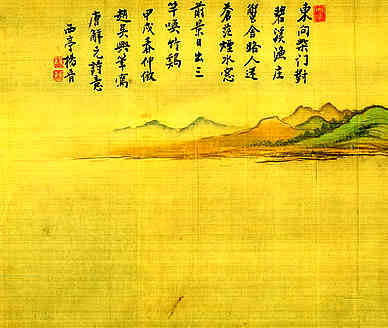 東向柴门對
碧溪漁庄
蟹舍路人迷
蒼茫煙水窓
前景日出三
竿唤竹鷄
甲戌春仲倣
趙吳興筆寫
唐解元詩意
西亭楊晉